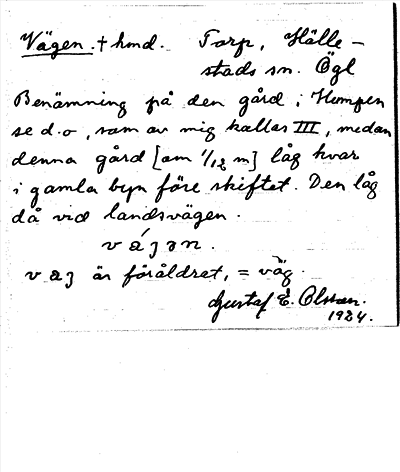 Vägen. + hmd. Torp, Hälle-
stads sn. Ögl
Benämning på den gård i Humpen
se d.o, som av mig kallas III, medan
denna gård [om 1/12 m] låg kvar
i gamla byn före skiftet. Den låg
då vid landsvägen.
vájən.
vaj är föråldrat, = väg.
Gustaf E. Olsson.
1924.